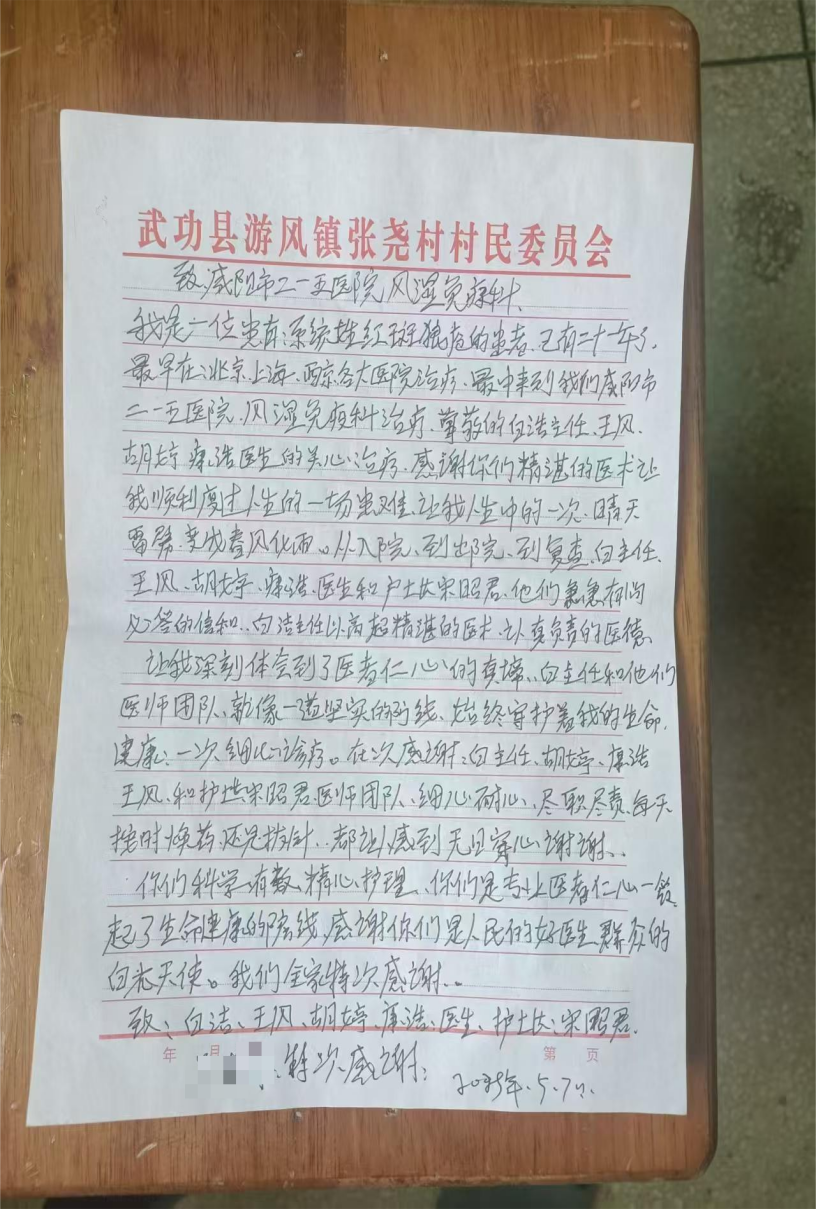 武功县游风镇张尧村村民委员会
致、咸阳市二一五医院风湿免疫科、
我是一位患有、系统性红斑狼疮的患者、已有二十一年了、
最早在、北京、上海、西京各大医院治疗、最中来到我们咸阳市
二一五医院、风湿免疫科治疗、尊敬的白洁主任、王风、
胡婷、康浩医生的关心治疗、感谢你们精湛的医术让
我顺利度过人生的一场患难、让我人生中的一次、晴天
雷劈、变成春风化雨。从入院、到出院、到复查、白主任、
王风、胡婷、康浩、医生和户士长宋昭君、他们
必答的信和、白洁主任以高超精湛的医术、认真负责的医德、
让我深刻体会到了医者仁心的真谛、白主任和他们
医师团队、就像一道坚实的防线、始终守护着我的生命、
健康、一次细心诊疗。在次感谢、白主任、胡婷、康浩
王风、和护士长宋昭君医师团队、细心耐心、尽职尽责、每天
按时换药、还是扎针、都让人感到无
谢谢、
你们科学有数、精心护理、你们是专业医者仁心一
起了生命健康的防线、感谢你们是人民的好医生、群众的
白衣天使。我们全家特次感谢、
致、白洁、王风、胡婷、康浩、医生、护士长、宋昭君、
年 月 第 页
特次感谢、
2025年、5、7